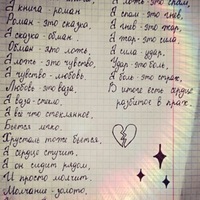 А книга - роман
Роман - это сказка,
А сказка - обман.
Обман - это ложь,
А ложь - это чувство,
А чувство - любовь,
Любовь - это ваза,
А ваза - стекло,
А всё что стеклянное,
Бьётся легко.
Хрусталь тоже бьётся,
А сердце стучит,
А он сидит рядом,
И просто молчит.
Молчание - золото,
А ложь - это
А это гнев,
А гнев - это жар,
А жар - это сила
А сила - удар,
Удар - это боль,
А боль - это страх,
В итоге есть сердце
разбитое в прах.